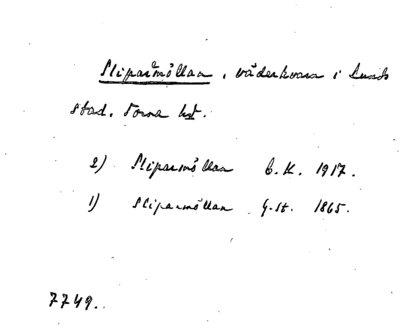 Sliparmöllan, väderkvarn i Lunds
stad, Torna hd.
2) Sliparmöllan E.K. 1917.
1) Sliparmöllan G.St. 1865.
7749.